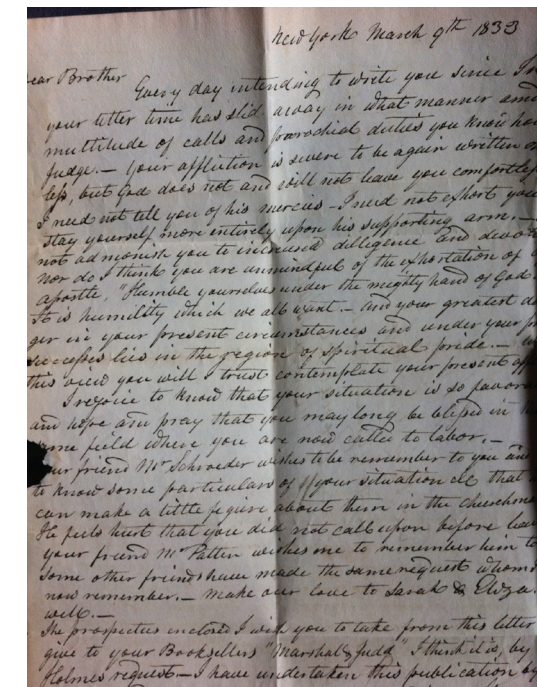 New York March 9th 1833
ear Brother
Every day intending to write you since I
your letter time has slid away in what manner amid
multitude of calls and parochial duties you know how
judge.— Your affliction is severe to be again written
less, but God does not and will not leave you comfortless
I need not tell you of his mercies — I need not exhort you
stay yourself more entirely upon his supporting arm.—
not admonish you to increased deligence and devot
nor do I think you are unmindful of the exhortation of
apostle, "Humble yourselves under the mighty hand of God
It is humility which we all want.— And your greatest da
ger in your present circumstances and under your
successes lies in the region of spiritual pride.—
this view you will I trust contemplate your present aff
I rejoice to know that your situation is so favor
and hope and pray that you may long be blessed in
same field where you are now called to labor.—
ur friend Mr Schroeder wishes to be remember to you and
to know some particulars of your situation &c that
can make a little figure about them in the churchm
He feels hurt that you did not call upon before
your friend Mr Patten wishes me to remember him to
some other friends have made the same request whom
now remember.— Make our love to Sarah & Eliza.
well.—
The prospectus enclosed I wish you to take from this letter
give to your Booksellers "Marshal & Judd," I think it is, by
Holmes request.— I have undertaken this publication by